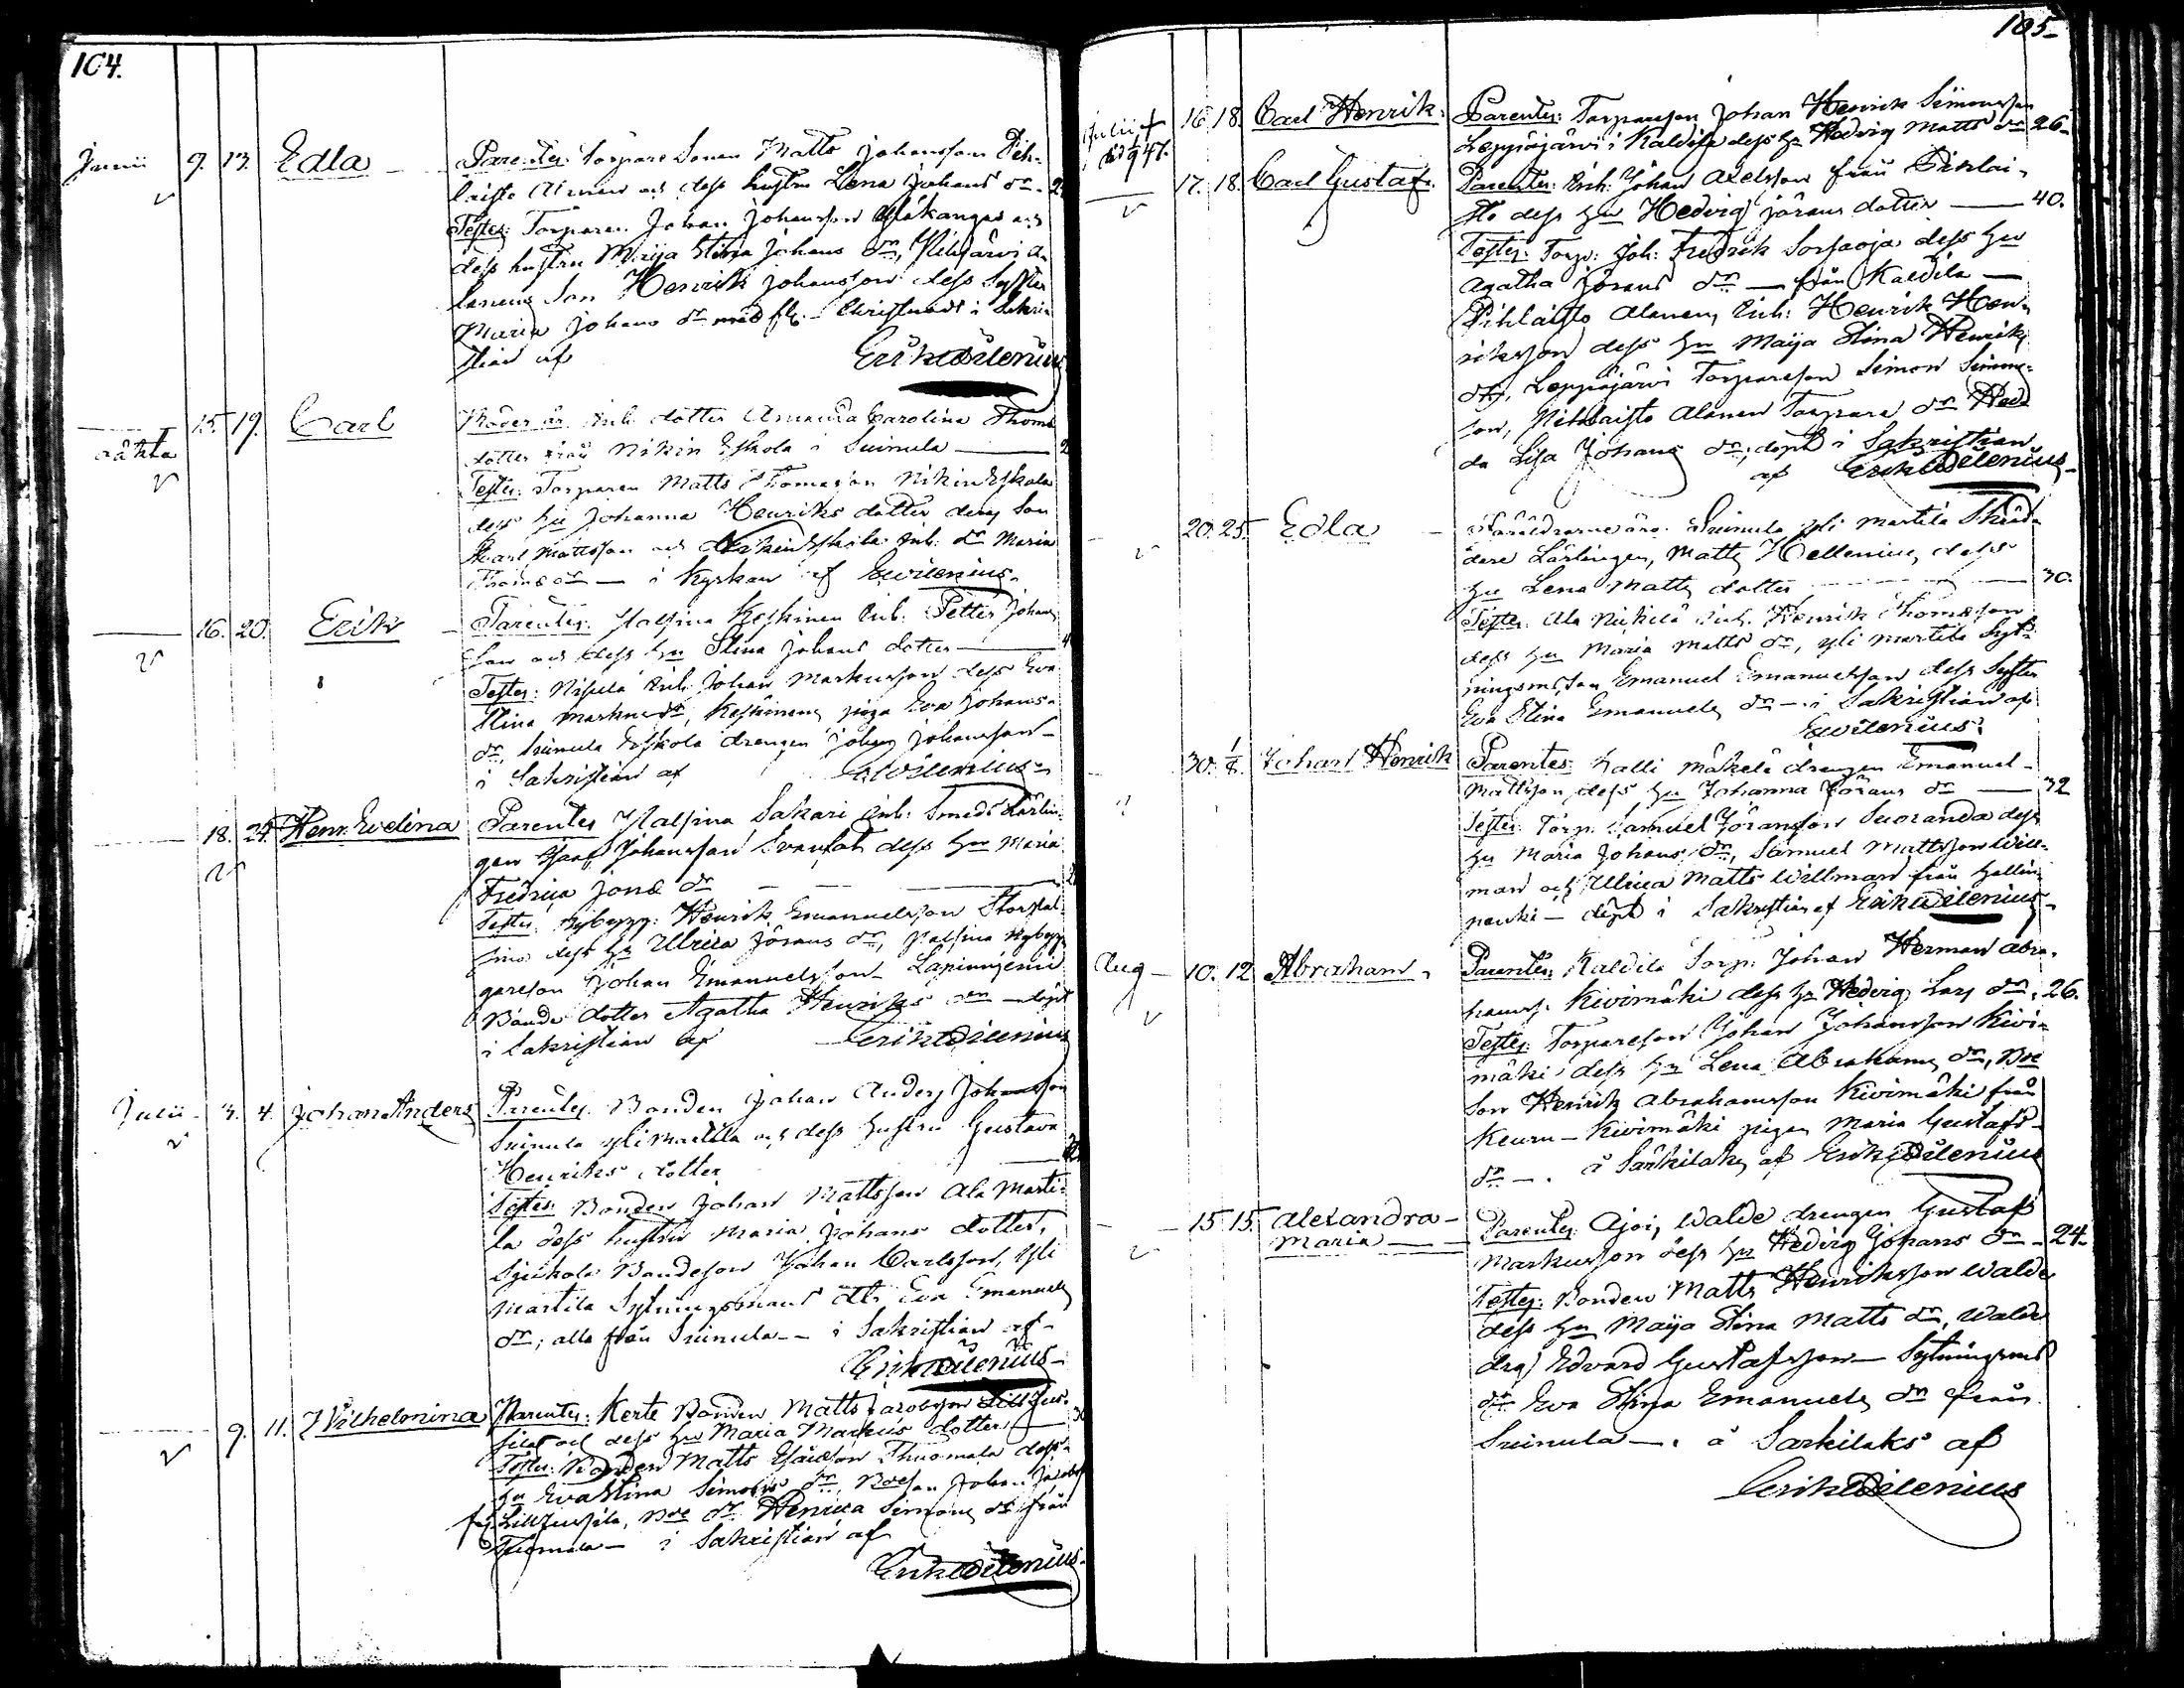 104.
Junii 9. 13. Edla Parentes: Torpare Sonen Matts Johansson Pih-
laisto Alanen och dess hustru Lena Johans dr
Testes: Torparen Johan Johansson och
dess hustru Maija Stina Johans dr,
Son Henrik Johansson dess Syster
Maria Johans dr med fl. Christnad i Sakri-
stian af Erik Wilenius
oäkta 15. 19. Carl Moder är Inh. dotter Amanda Carolina Thoms
dotter från Nikin Eskola i Suinula
Testes: Torparen Matts Thomasson Nikin Eskola
dess hu Johanna Henriks dotter dess Son
Karl Mattsson och Nikin Eskola Inh. dr Maria
Thoms dr — i Kyrkan af EWilenius
16. 20. Erik Parentes: Yalfina Keskinen Inh. Petter Johans
son och dess hu Stina Johans dotter
Testes: Inh. Johan Markusson dess Eva
Stina Markus dr, Keskinens piga Eva Johans
dr, Suinula Eskola drengen Johan Johansson
i Sakristian af EWilenius
18. 24. Henr. Evelina Parentes Sakari Inh. Smeds Lärlin-
gen Johansson dess hu Maria
Fredrica Jons dr
Testes: Nybygg: Henrik Emanuelsson
dess hu Ulrica Jörans dr, Nybygg
gareson Johan Emanuelsson Lapinnjemi
Bonde dotter Agatha Henriks dr döpt
i Sakristian af Erik Wilenius
Julii 3. 4. Johan Anders Parentes: Bonden Johan Anders Johansson
Suinula yli Martila och dess hustru Gustava
Henriks dotter
Testes: Bonden Johan Mattsson Ala Marti-
la dess hustru Maria Johans dotter,
Bondeson Johan Carlsson, Yli
Martila Sytningsmans dtr Eva Emanuels
dr, alla från Suinula — i Sakristian af
Erik Wilenius
9. 11. Wilhelmina Parentes: Kerte Bonden Matts Jacobsson Lill Jus-
sila och dess hu Maria Markus dotter
Testes: Bonden Matts Esaiesson Thuomala dess
hu Eva Stina Simons dr, Johan Jacobs
Lill Jussila, Bde dr Henrica Simons dr från
Thuomala — i Sakristian af
Erik Wilenius
105
Julii 16. 18. Carl Henrik. Parentes: Torpareson Johan Henrik Simonsson
Leppäjärvi i Kaldila dess hu Hedvig Matts dr 26
17. 18. Carl Gustaf. Parentes: Inh: Johan Axelsson från Pihlai-
sto dess hu Hedvig Jörans dotter — 40.
Testes: Torp: Joh: Fredrik Sorsaoja dess hu
Agatha Jörans dr — från Kaldila —
Pihlaisto Alanens Inh: Henrik Hen-
riksson dess hu Maija Stina Henriks
dr, Leppäjärvi Torpareson Simon Simons-
son, Pihlaisto Alanen Torpare dr Hed
da Lisa Johans dr, döpt i Sakristian
af Erik Wilenius
20. 25. Edla Föräldrarne äro Suinula yli Martila Skräd-
dare Lärlingen, Matts Hellenius dess
hu Lena Matts dotter — 30.
Testes: Ala Inh. Henrik Thomasson
dess hu Maria Matts dr, yli Martila Syt-
ningsm. Son Emanuel Emanuelsson dess Syster
Eva Stina Emanuels dr — i Sakristian af
EWilenius
30. 1/8. Johan Henrik Parentes: Kalli Mäkelä drengen Emanuel
Mattsson, dess hu Johanna Jörans dr — 32
Testes: Torp. Samuel Jöransson Suoranda dess
hu Maria Johans dr, Samuel Mattsson Will-
man och Ulrica Matts Willman från
döpt i Sakristian af Erik Wilenius
Aug — 10. 12 Abraham Parentes: Kaldila Torp: Johan Herman Abra-
hamss: Kivimäki dess hu Hedvig Lars dr. 26.
Testes: Torpareson Johan Johansson Kivi-
mäki dess hu Lena Abrahams dr, Bde
Son Henrik Abrahamsson Kivimäki från
Keuru — Kivimäki pigan Maria Gustafs
dr —. å Särkilaks af Erik Wilenius
15 15. Alexandra Parentes: Walde drengen Gustaf
Maria Markusson dess hu Hedvig Johans dr — 24
Testes: Bonden Matts Henriksson Walde
dess hu Maija Stina Matts dr, Walde
drg) Edvard Gustafsson — Sytningsms
dr Eva Stina Emanuels dr från
Suinula —. å Sarkilaks af
Erik Wilenius